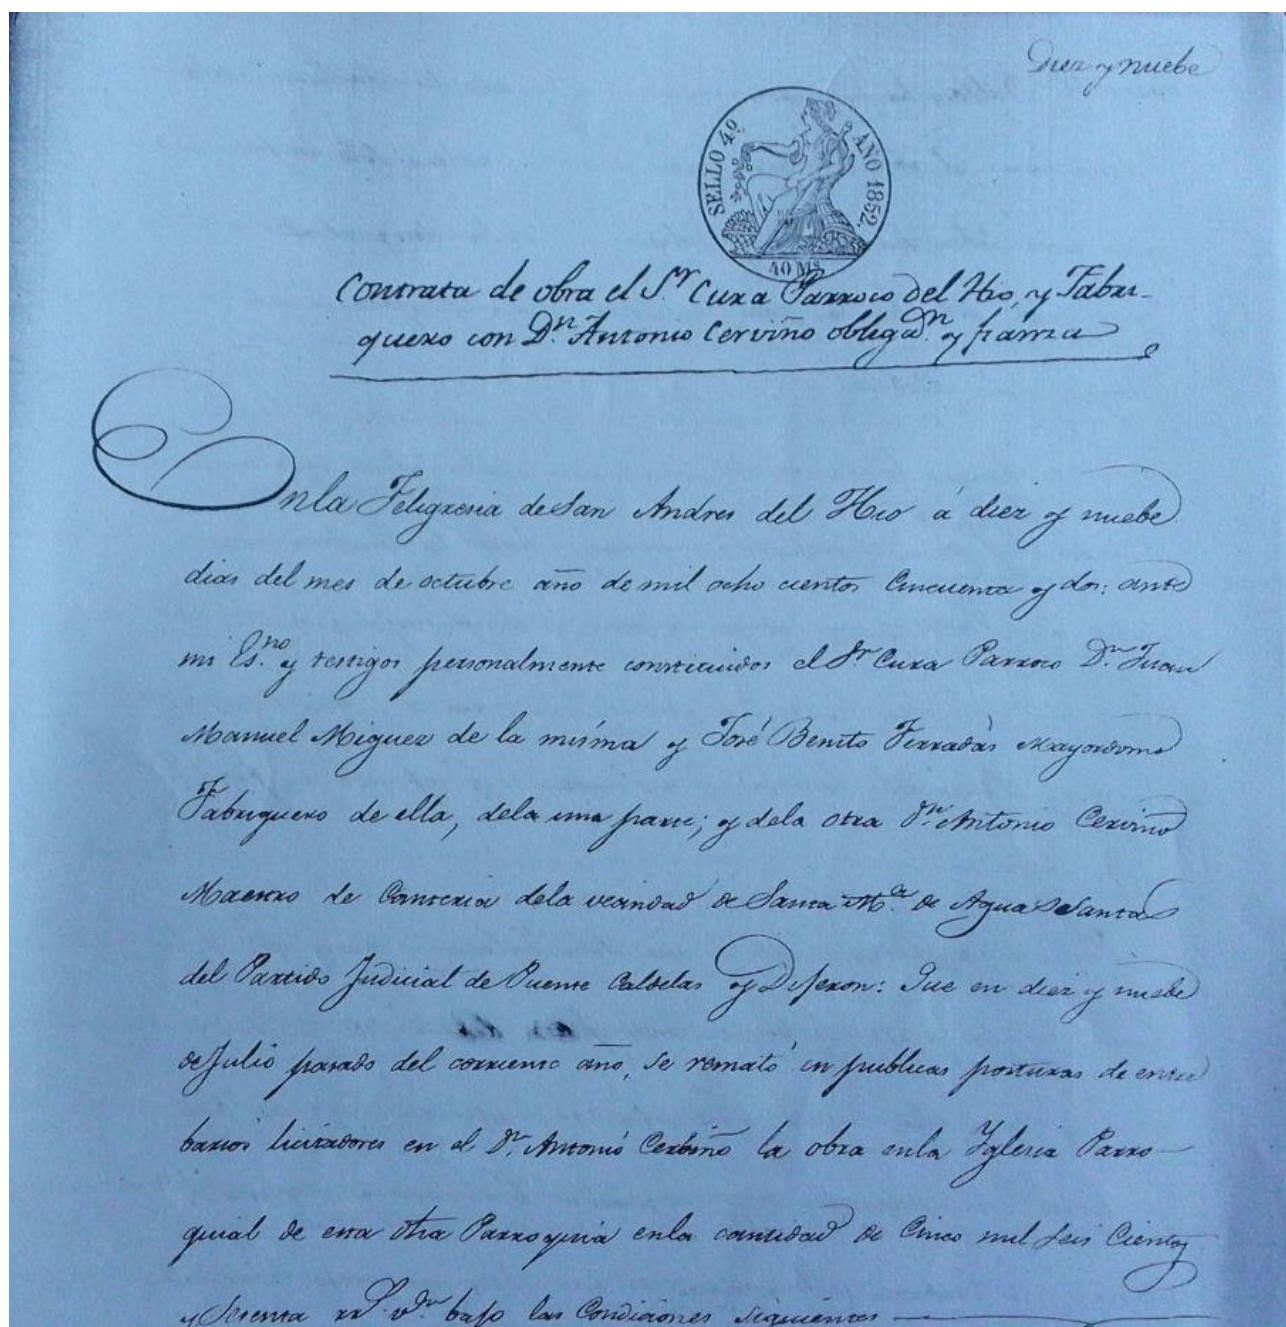 Diez y nuebe
SELLO 4º AÑO 1852.
40 Ms
Contrata de obra el S.r Cura Parroco del Hio, y Fabri-
quero con D.n Antonio Cerviño obligac.n y fianza
En la Feligresia de San Andres del Hio á diez y nuebe
dias del mes de octubre año de mil ocho cientos Cincuenta y dos: ante
mi Es.no y testigos personalmente constituidos el S.r Cura Parroco D.n Juan
Manuel Miguez de la misma y José Benito Ferradás Mayordomo
Fabriquero de ella, dela una parte; y dela otra D.n Antonio Cerviño
Maestro de Canteria dela vecindad de Santa M.a de Aguas Santas
del Partido Judicial de Puente Caldelas y Dijeron: Que en diez y nuebe
de Julio pasado del corriente año, se remató en publicas posturas de entre
barios licitadores en el D.n Antonio Cerbiño la obra enla Yglesia Parro-
quial de esta dha Parroquia enla cantidad de Cinco mil seis Cientos
y Sesenta rr.s v.on bajo las Condiciones siguientes